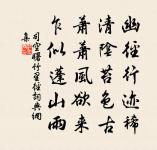 幽徑行迹稀
清陰苔色古
蕭蕭風欲來
乍似蓬山雨
司空曙竹里徑詞典網
集